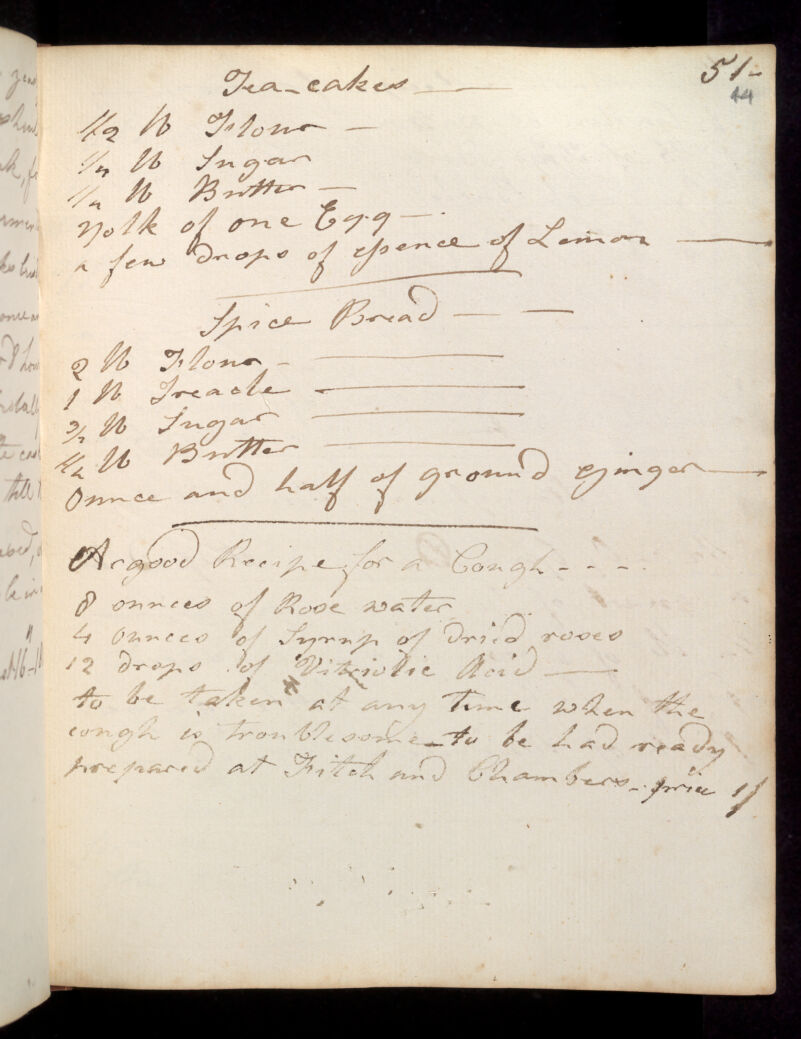 51-
44
Tea-cakes
1/2 lb Flour
1/4 lb Sugar
1/4 lb Butter
Yolk of one Egg
a few drops of essence of Lemon
Spice Bread
2 lb Flour
1 lb Treacle
lb Sugar
1/2 lb Butter
Ounce and half of ground ginger
A good Recipe for a Cough - - - -
8 ounces of Rose water
4 Ounces of Syrup of dried roses
12 drops of Vitriolic Acid
to be taken at any time when the
cough is troublesome - to be had ready
prepared at Fitch and Chambers - price 1/